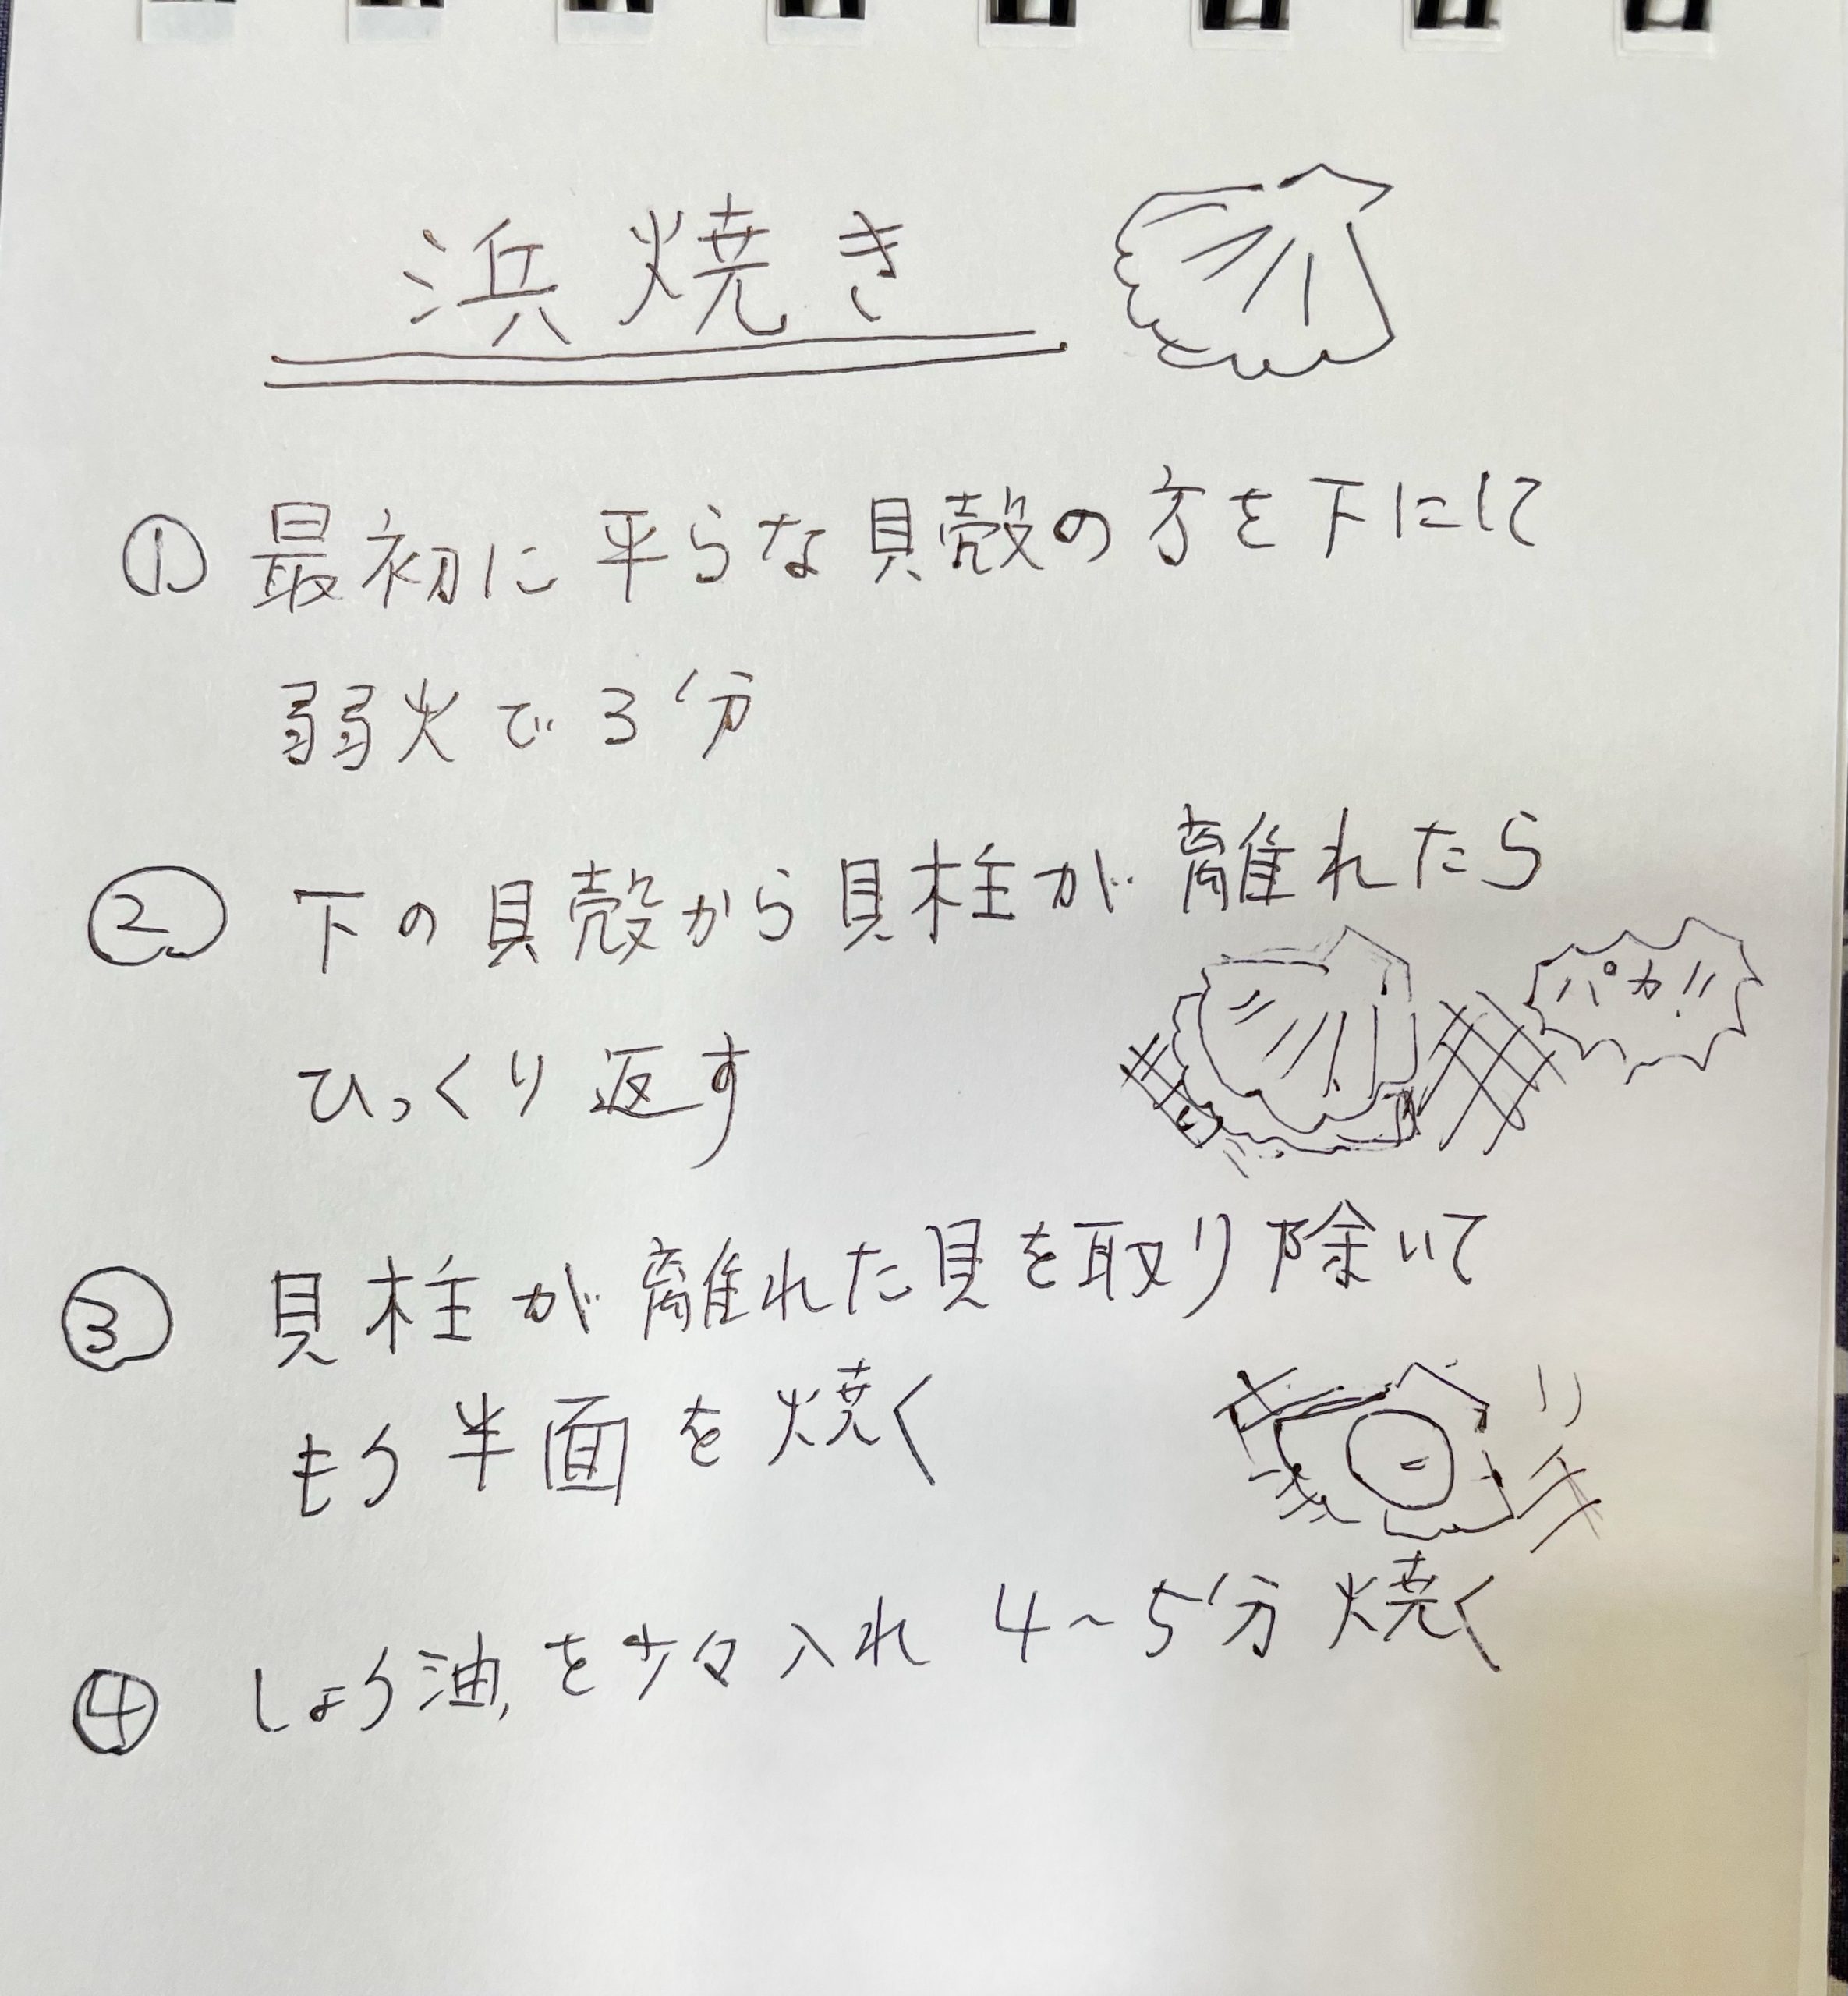 浜焼き
① 最初に平らな貝殻の方を下にして
弱火で3分
② 下の貝殻から貝柱が離れたら
パカッ
ひっくり返す
③ 貝柱が離れた貝を取り除いて
もう半面を焼く
④ しょう油を少々入れ 4~5分焼く